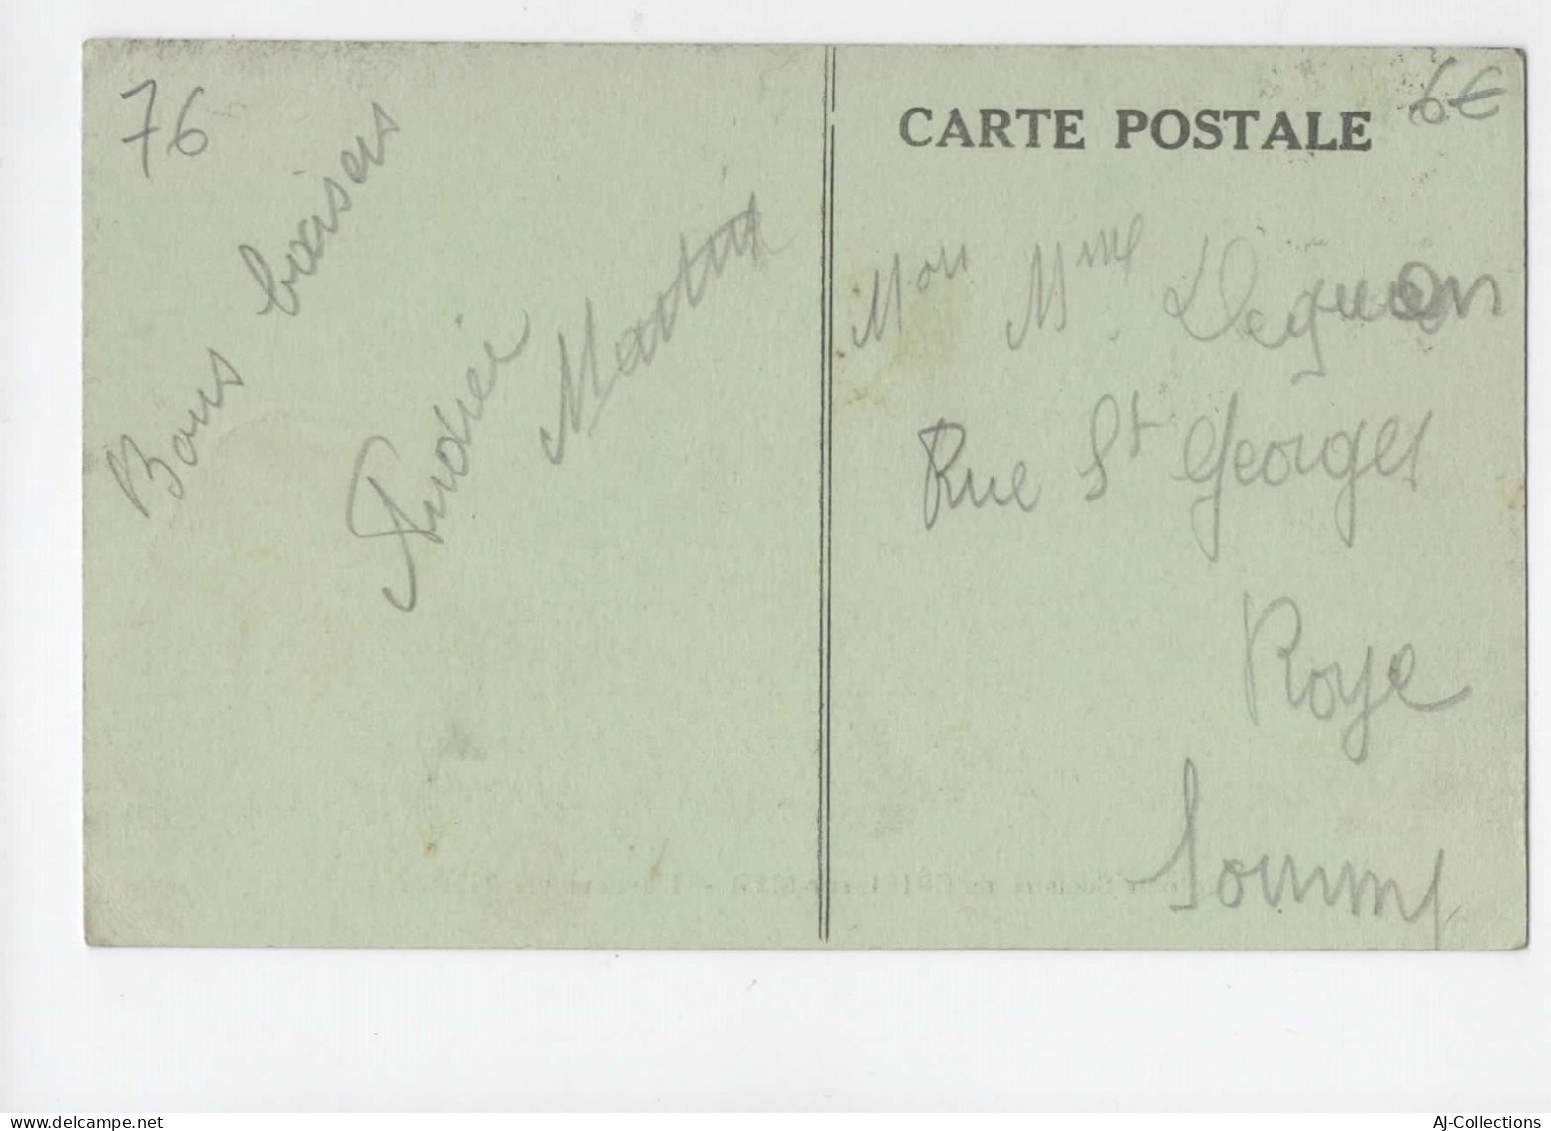 76
Bons baisers
Andrée
CARTE POSTALE
6€
Mon Mme
Rue St Georges
Roye
Somme
AJ-Collections